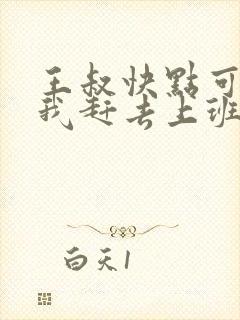 王叔快點可
我赶去上班
白天1